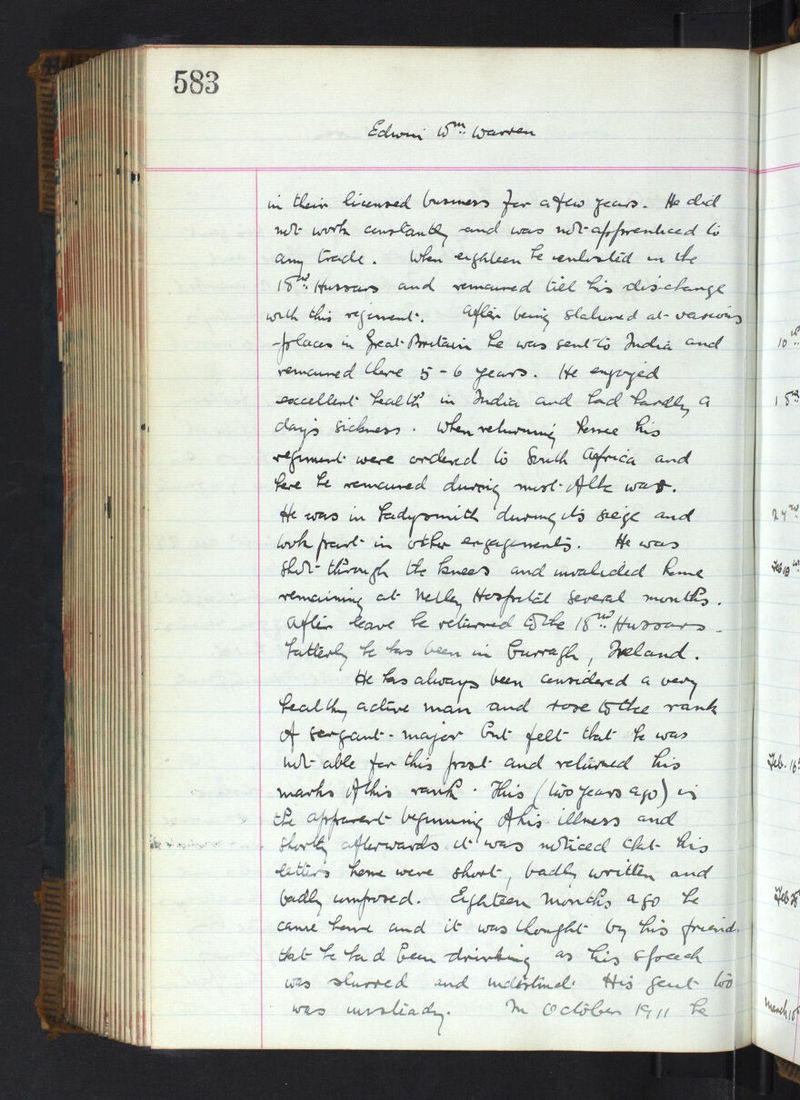 583
Edwin Wm. Warren
in their licensed business for a few years. He did
not work constantly and was not apprenticed to
any trade. When eighteen he enlisted in the
18th Hussars and remained till his discharge
with this regiment. After being stationed at various
places in Great Britain he was sent to India and
remained there 5-6 years. He enjoyed
excellent health in India and had hardly a
day's sickness. When returning home his
regiment were ordered to South Africa and
here he remained during most of the war.
He was in Ladysmith during its siege and
took part in other engagements. He was
shot through the knees and invalided home
remaining at Netley Hospital several months.
After leave he returned to the 18th Hussars.
Latterly he has been in Curragh, Ireland.
He has always been considered a very
healthy active man and rose to the rank
of sergant-major but felt that he was
not able for this post and returned his
marks of this rank. This (two years ago) is
the apparent beginning of his illness and
shortly afterwards it was noticed that his
letters home were short, badly written and
badly composed. Eighteen months ago he
came home and it was thought by his friends
that he had been drinking as his speech
was slurred and indistinct. His gait too
was unsteady. In October 1911 he
10th
15th
Feb 19th
Feb. 16
Feb 28
March 10